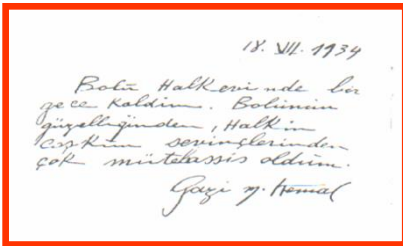 18. VII. 1934
Bolu Halkevinde bir
gece kaldım. Bolunun
güzelliğinden, Halkın
coşkun sevinçlerinden
çok mütehassis oldum.
Gazi M. Kemal